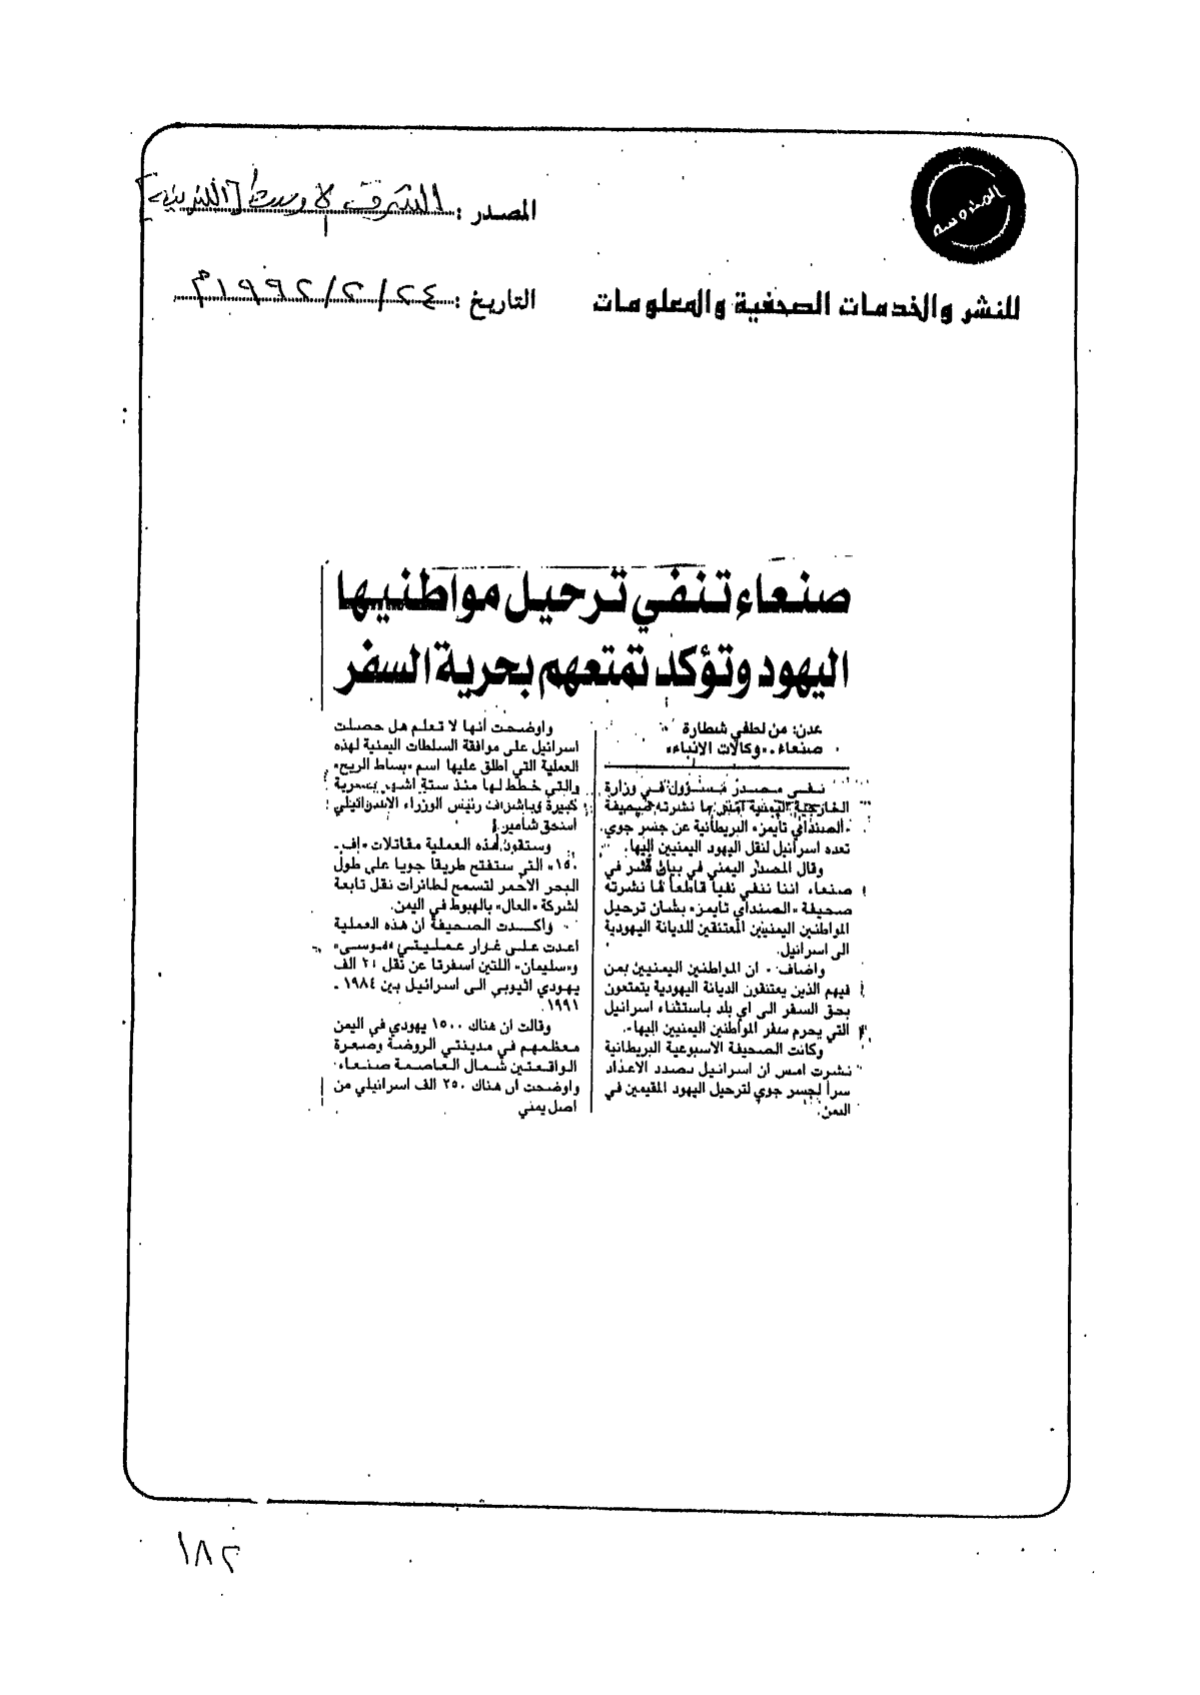 المصدر : الشرق الأوسط اللندنية
المحروسة
التاريخ : ٢٤/٢/١٩٩٢م
للنشر والخدمات الصحفية والمعلومات
صنعاء تنفي ترحيل مواطنيها
اليهود وتؤكد تمتعهم بحرية السفر
عدن: من لطفي شطارة
صنعاء ـ «وكالات الانباء»
نفى مصدر مسؤول في وزارة
الخارجية اليمنية امس ما نشرته صحيفة
«الصنداي تايمز» البريطانية عن جسر جوي
تعده اسرائيل لنقل اليهود اليمنيين إليها.
وقال المصدر اليمني في بيان نشر في
صنعاء اننا ننفي نفياً قاطعاً لما نشرته
صحيفة «الصنداي تايمز» بشان ترحيل
المواطنين اليمنيين المعتنقين للديانة اليهودية
الى اسرائيل.
واضاف «ان المواطنين اليمنيين بمن
فيهم الذين يعتنقون الديانة اليهودية يتمتعون
بحق السفر الى اي بلد باستثناء اسرائيل
التي يحرم سفر المواطنين اليمنيين إليها».
وكانت الصحيفة الاسبوعية البريطانية
نشرت امس ان اسرائيل بصدد الاعداد
سراً لجسر جوي لترحيل اليهود المقيمين في
اليمن.
واوضحت أنها لا تعلم هل حصلت
اسرائيل على موافقة السلطات اليمنية لهذه
العملية التي اطلق عليها اسم «بساط الريح»
والتي خطط لها منذ ستة اشهر بسرية
كبيرة وباشراف رئيس الوزراء الاسرائيلي
اسحق شامير.
وستقون هذه العملية مقاتلات «إف ـ
١٥» التي ستفتح طريقا جويا على طول
البحر الاحمر لتسمح لطائرات نقل تابعة
لشركة «العال» بالهبوط في اليمن.
وأكدت الصحيفة ان هذه العملية
اعدت على غرار عمليتي «موسى»
و«سليمان» اللتين اسفرتا عن نقل ٢١ الف
يهودي اثيوبي الى اسرائيل بين ١٩٨٤ ـ
١٩٩١.
وقالت ان هناك ١٥٠٠ يهودي في اليمن
معظمهم في مدينتي الروضة وصعرة
الواقعتين شمال العاصمة صنعاء.
واوضحت ان هناك ٢٥٠ الف اسرائيلي من
اصل يمني
١٨٢